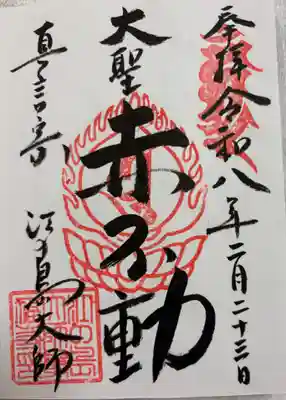 奉拝令和八年二月二十三日
大聖
赤不動
真言宗
江の島大師